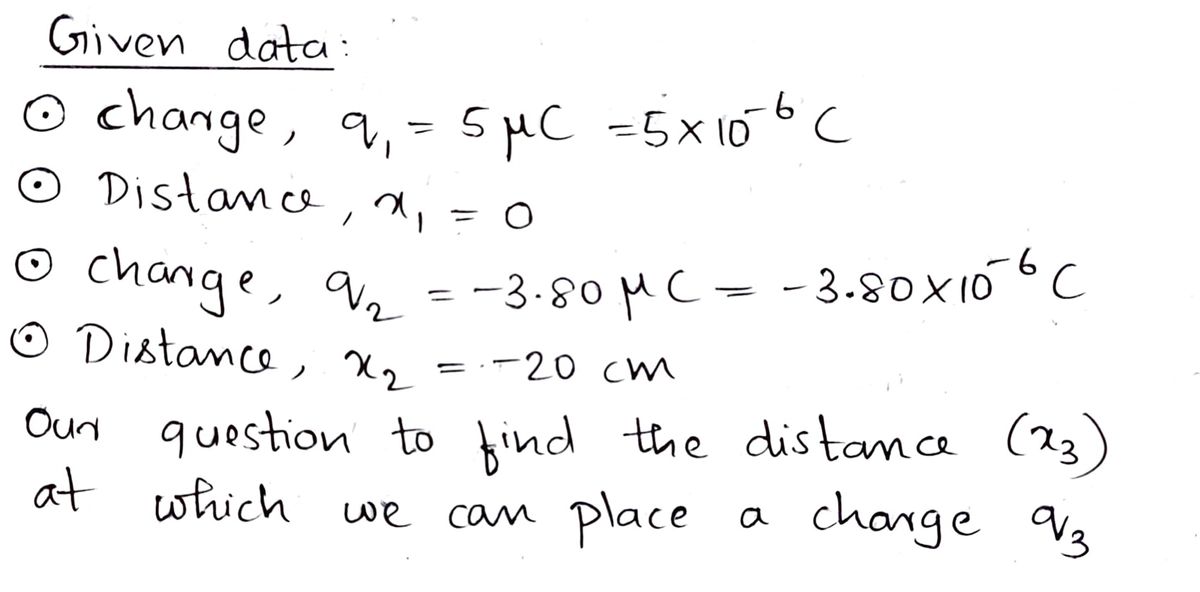 Given data:
⊙ charge, q₁ = 5 μC = 5 × 10⁻⁶ C
⊙ Distance, x₁ = 0
⊙ charge, q₂ = -3.80 μC = -3.80×10⁻⁶ C
⊙ Distance, x₂ = -20 cm
Our question to find the distance (x₃)
at which we can place a charge q₃